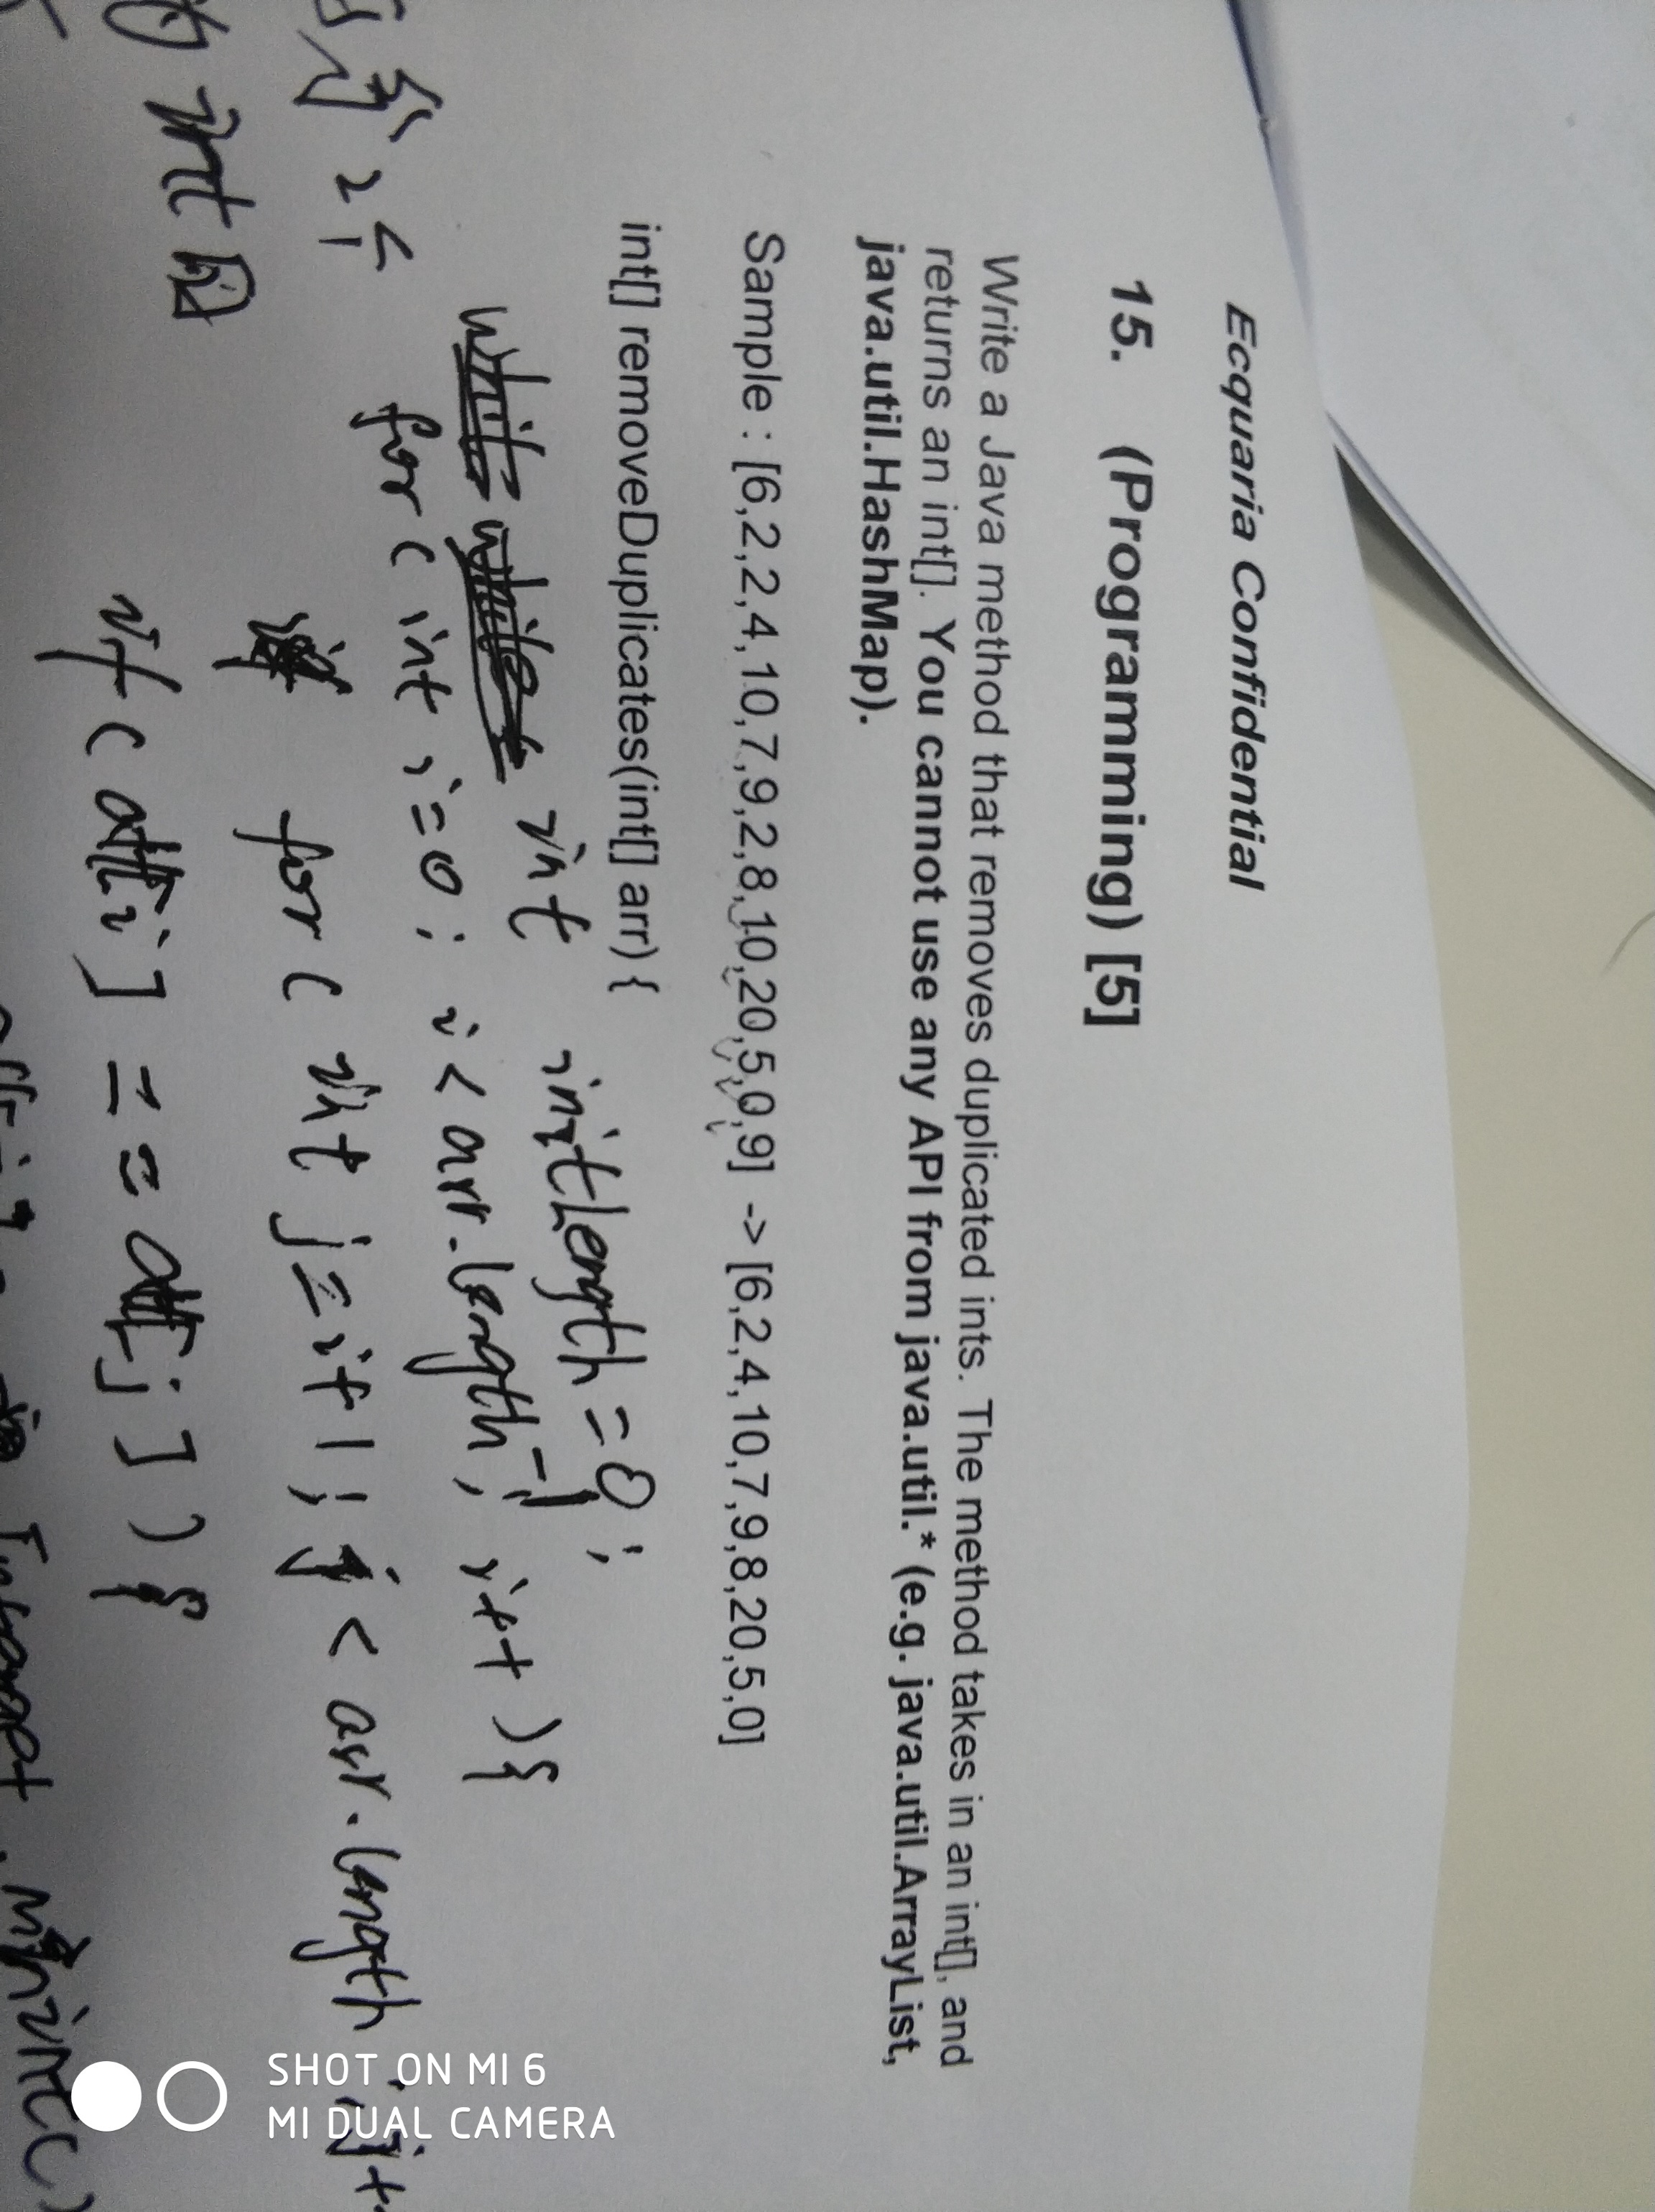 Ecquaria Confidential
15. (Programming) [5]
Write a Java method that removes duplicated ints. The method takes in an int[], and
returns an int[]. You cannot use any API from java.util.* (e.g. java.util.ArrayList,
java.util.HashMap).
Sample : [6,2,2,4,10,7,9,2,8,10,20,5,0,9] -> [6,2,4,10,7,9,8,20,5,0]
int[] removeDuplicates(int[] arr) {
int initLength = 0;
for ( int i=0; i < arr.length-1; i++ ) {
for ( int j=i+1; j < arr.length ; j+
if ( arr[i] == arr[j] ) {
int
SHOT ON MI 6
MI DUAL CAMERA